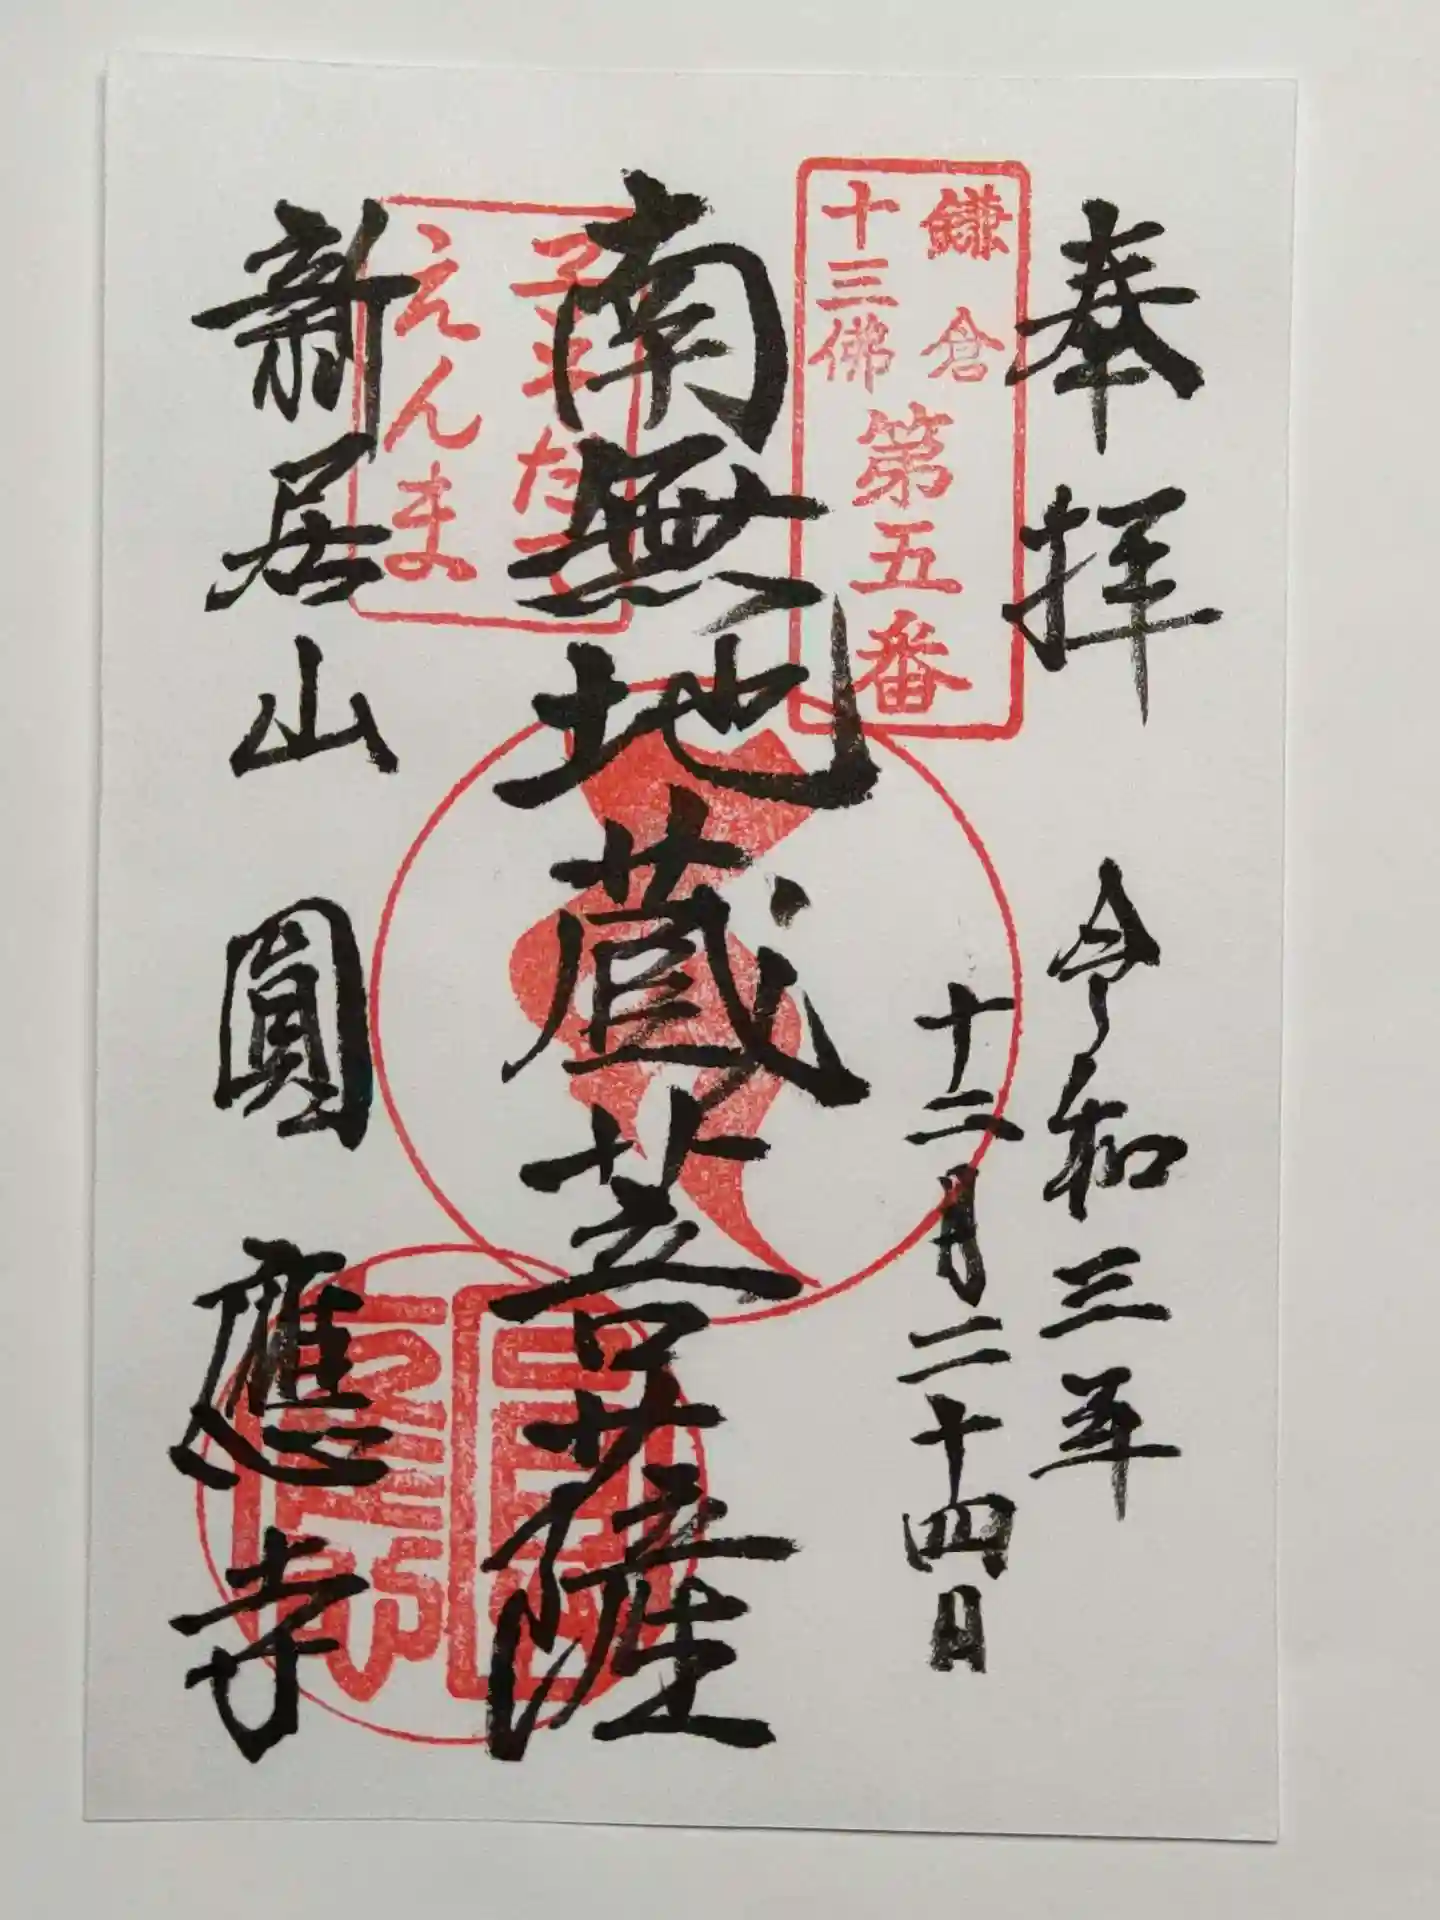 奉拝
令和三年
十二月二十四日
鎌倉
十三佛
第五番
南無地蔵菩薩
子そだて
えんま
新居山
圓應寺